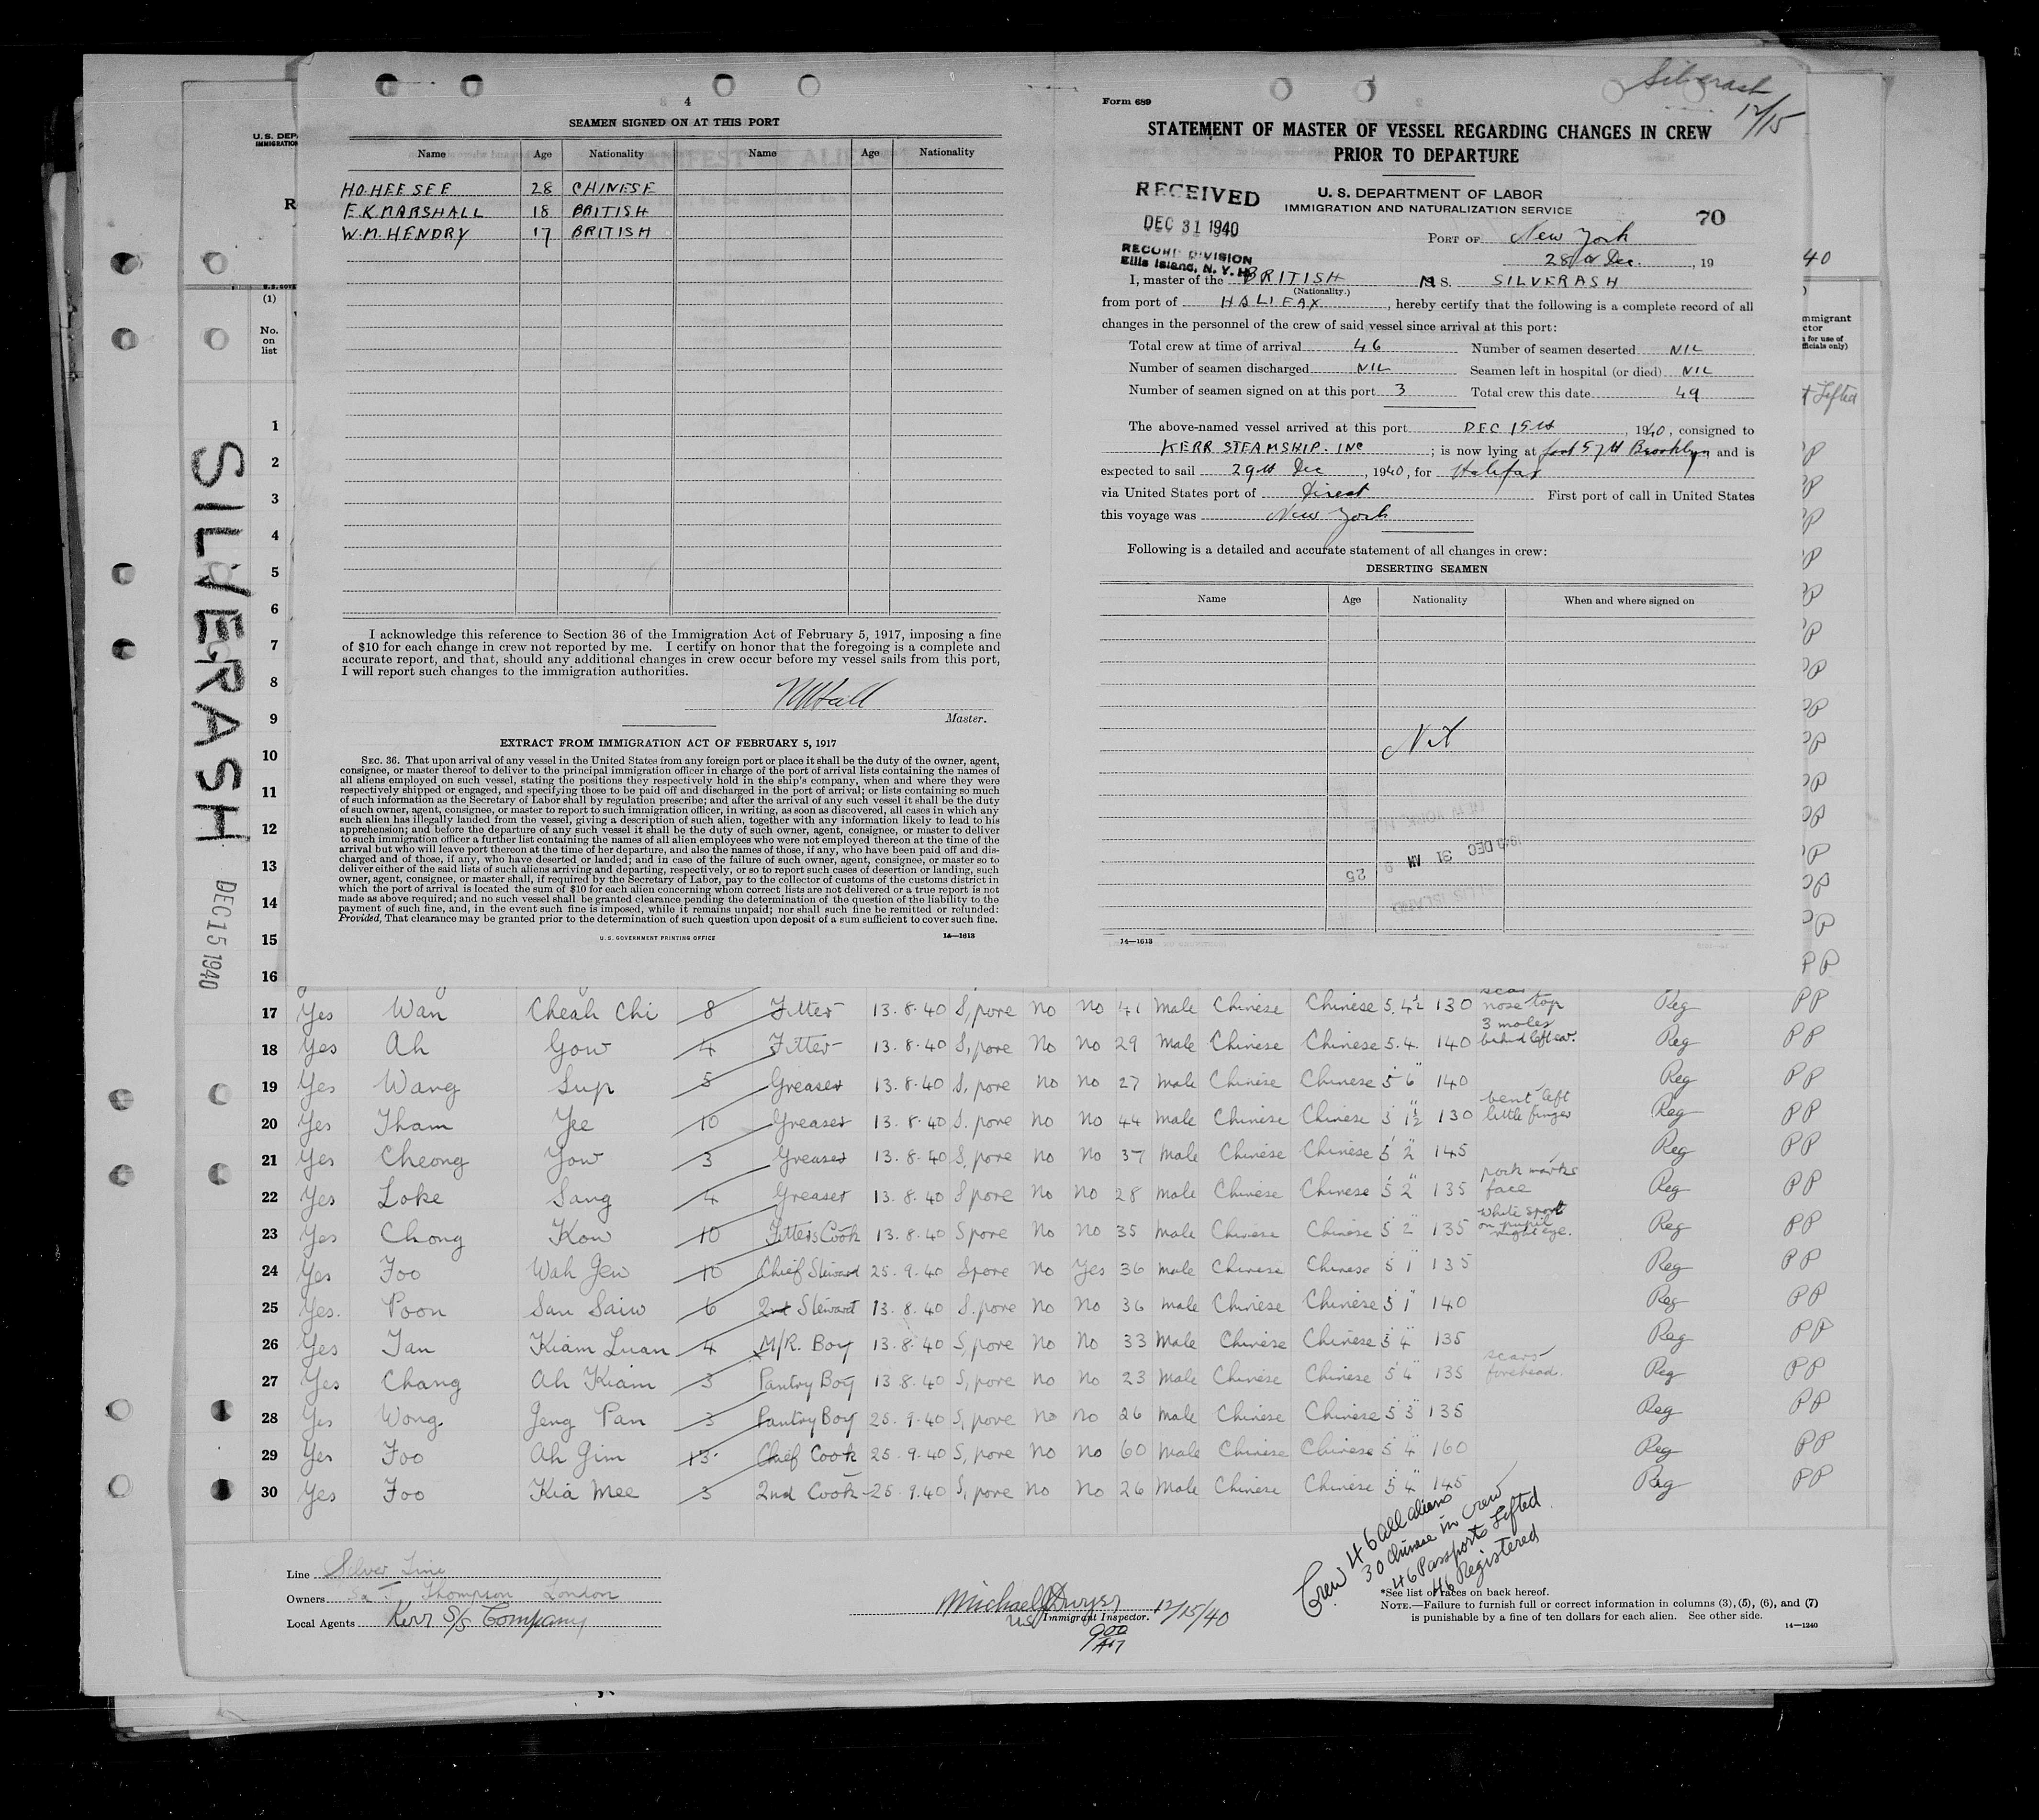 4
SEAMEN SIGNED ON AT THIS PORT
Name Age Nationality Name Age Nationality
HO.HEE SEE 28 CHINESE
E.K.MARSHALL 18 BRITISH
W.M.HENDRY 17 BRITISH
I acknowledge this reference to Section 36 of the Immigration Act of February 5, 1917, imposing a fine
of $10 for each change in crew not reported by me. I certify on honor that the foregoing is a complete and
accurate report, and that, should any additional changes in crew occur before my vessel sails from this port,
I will report such changes to the immigration authorities.
Master.
EXTRACT FROM IMMIGRATION ACT OF FEBRUARY 5, 1917
SEC. 36. That upon arrival of any vessel in the United States from any foreign port or place it shall be the duty of the owner, agent,
consignee, or master thereof to deliver to the principal immigration officer in charge of the port of arrival lists containing the names of
all aliens employed on such vessel, stating the positions they respectively hold in the ship's company, when and where they were
respectively shipped or engaged, and specifying those to be paid off and discharged in the port of arrival; or lists containing so much
of such information as the Secretary of Labor shall by regulation prescribe; and after the arrival of any such vessel it shall be the duty
of such owner, agent, consignee, or master to report to such immigration officer, in writing, as soon as discovered, all cases in which any
such alien has illegally landed from the vessel, giving a description of such alien, together with any information likely to lead to his
apprehension; and before the departure of any such vessel it shall be the duty of such owner, agent, consignee, or master to deliver
to such immigration officer a further list containing the names of all alien employees who were not employed thereon at the time of the
arrival but who will leave port thereon at the time of her departure, and also the names of those, if any, who have been paid off and dis-
charged and of those, if any, who have deserted or landed; and in case of the failure of such owner, agent, consignee, or master so to
deliver either of the said lists of such aliens arriving and departing, respectively, or so to report such cases of desertion or landing, such
owner, agent, consignee, or master shall, if required by the Secretary of Labor, pay to the collector of customs of the customs district in
which the port of arrival is located the sum of $10 for each alien concerning whom correct lists are not delivered or a true report is not
made as above required; and no such vessel shall be granted clearance pending the determination of the question of the liability to the
payment of such fine, and, in the event such fine is imposed, while it remains unpaid; nor shall such fine be remitted or refunded:
Provided, That clearance may be granted prior to the determination of such question upon deposit of a sum sufficient to cover such fine.
U.S. GOVERNMENT PRINTING OFFICE 14—1613
Silverash
12/15
Form 689
STATEMENT OF MASTER OF VESSEL REGARDING CHANGES IN CREW
PRIOR TO DEPARTURE
U. S. DEPARTMENT OF LABOR
IMMIGRATION AND NATURALIZATION SERVICE
70
RECEIVED
DEC 31 1940
RECORD DIVISION
Ellis Island, N. Y. H.
PORT OF New York
28th Dec. , 19
I, master of the BRITISH M S. SILVERASH
(Nationality.)
from port of HALIFAX , hereby certify that the following is a complete record of all
changes in the personnel of the crew of said vessel since arrival at this port:
Total crew at time of arrival 46 Number of seamen deserted NIL
Number of seamen discharged NIL Seamen left in hospital (or died) NIL
Number of seamen signed on at this port 3 Total crew this date 49
The above-named vessel arrived at this port DEC 15th , 1940, consigned to
KERR STEAMSHIP. INC ; is now lying at foot 57th Brooklyn and is
expected to sail 29th Dec , 1940, for Halifax
via United States port of Direct First port of call in United States
this voyage was New York
Following is a detailed and accurate statement of all changes in crew:
DESERTING SEAMEN
Name Age Nationality When and where signed on
Nil
1940 DEC 31 AM 9 25
14—1613
U. S. DEP
IMMIGRATION
R
(1)
No.
on
list
40
mmigrant
ctor
for use of
fficials only)
Lifted
SILVERASH
DEC 15 1940
1
2
3
4
5
6
7
8
9
10
11
12
13
14
15
16 PP
17 Yes Wan Cheah Chi 8 Fitter 13.8.40 S,pore No No 41 Male Chinese Chinese 5.4½ 130 scar nose top Reg PP
18 Yes Ah Gow 4 Fitter 13.8.40 S,pore No No 29 Male Chinese Chinese 5.4. 140 3 moles behind left ear. Reg PP
19 Yes Wang Sup 5 Greaser 13.8.40 S,pore No No 27 Male Chinese Chinese 5 6 140 Reg PP
20 Yes Tham Yee 10 Greaser 13.8.40 S.pore No No 44 Male Chinese Chinese 5 1½ 130 bent left little finger Reg PP
21 Yes Cheong Yow 3 Greaser 13.8.40 S,pore No No 37 Male Chinese Chinese 5 2 145 Reg PP
22 Yes Loke Sang 4 Greaser 13.8.40 S pore No No 28 Male Chinese Chinese 5 2 135 pock marks face Reg PP
23 Yes Chong Kow 10 Fitters Cook 13.8.40 Spore No No 35 Male Chinese Chinese 5 2 135 white spot on pupil right eye. Reg PP
24 Yes Foo Wah Jew 10 Chief Steward 25.9.40 Spore No Yes 36 Male Chinese Chinese 5 1 135 Reg PP
25 Yes. Poon San Saiw 6 2nd Steward 13.8.40 S.pore No No 36 Male Chinese Chinese 5 1 140 Reg PP
26 Yes Tan Kiam Luan 4 M/R. Boy 13.8.40 S,pore No No 33 Male Chinese Chinese 5 4 135 Reg PP
27 Yes Chang Ah Kiam 3 Pantry Boy 13.8.40 S,pore No No 23 Male Chinese Chinese 5 4 135 scars forehead. Reg PP
28 Yes Wong Jeng Pan 3 Pantry Boy 25.9.40 S,pore No No 26 Male Chinese Chinese 5 3 135 Reg PP
29 Yes Foo Ah Gim 13 Chief Cook 25.9.40 S,pore No No 60 Male Chinese Chinese 5 4 160 Reg PP
30 Yes Foo Kia Mee 3 2nd Cook 25.9.40 S,pore No No 26 Male Chinese Chinese 5 4 145 Reg PP
Crew 46 all aliens
30 Chinese in crew
46 Passports Lifted
46 Registered
Line Silver Line
Owners Thompson London
Local Agents Kerr S/S Company
Michael J Dwyer 12/15/40
US Immigrant Inspector.
900
AM
*See list of races on back hereof.
NOTE.—Failure to furnish full or correct information in columns (3), (5), (6), and (7)
is punishable by a fine of ten dollars for each alien. See other side.
14—1240